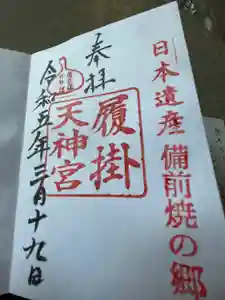 日本遺産 備前焼の郷
奉拝
履掛
天神宮
令和五年三月十九日